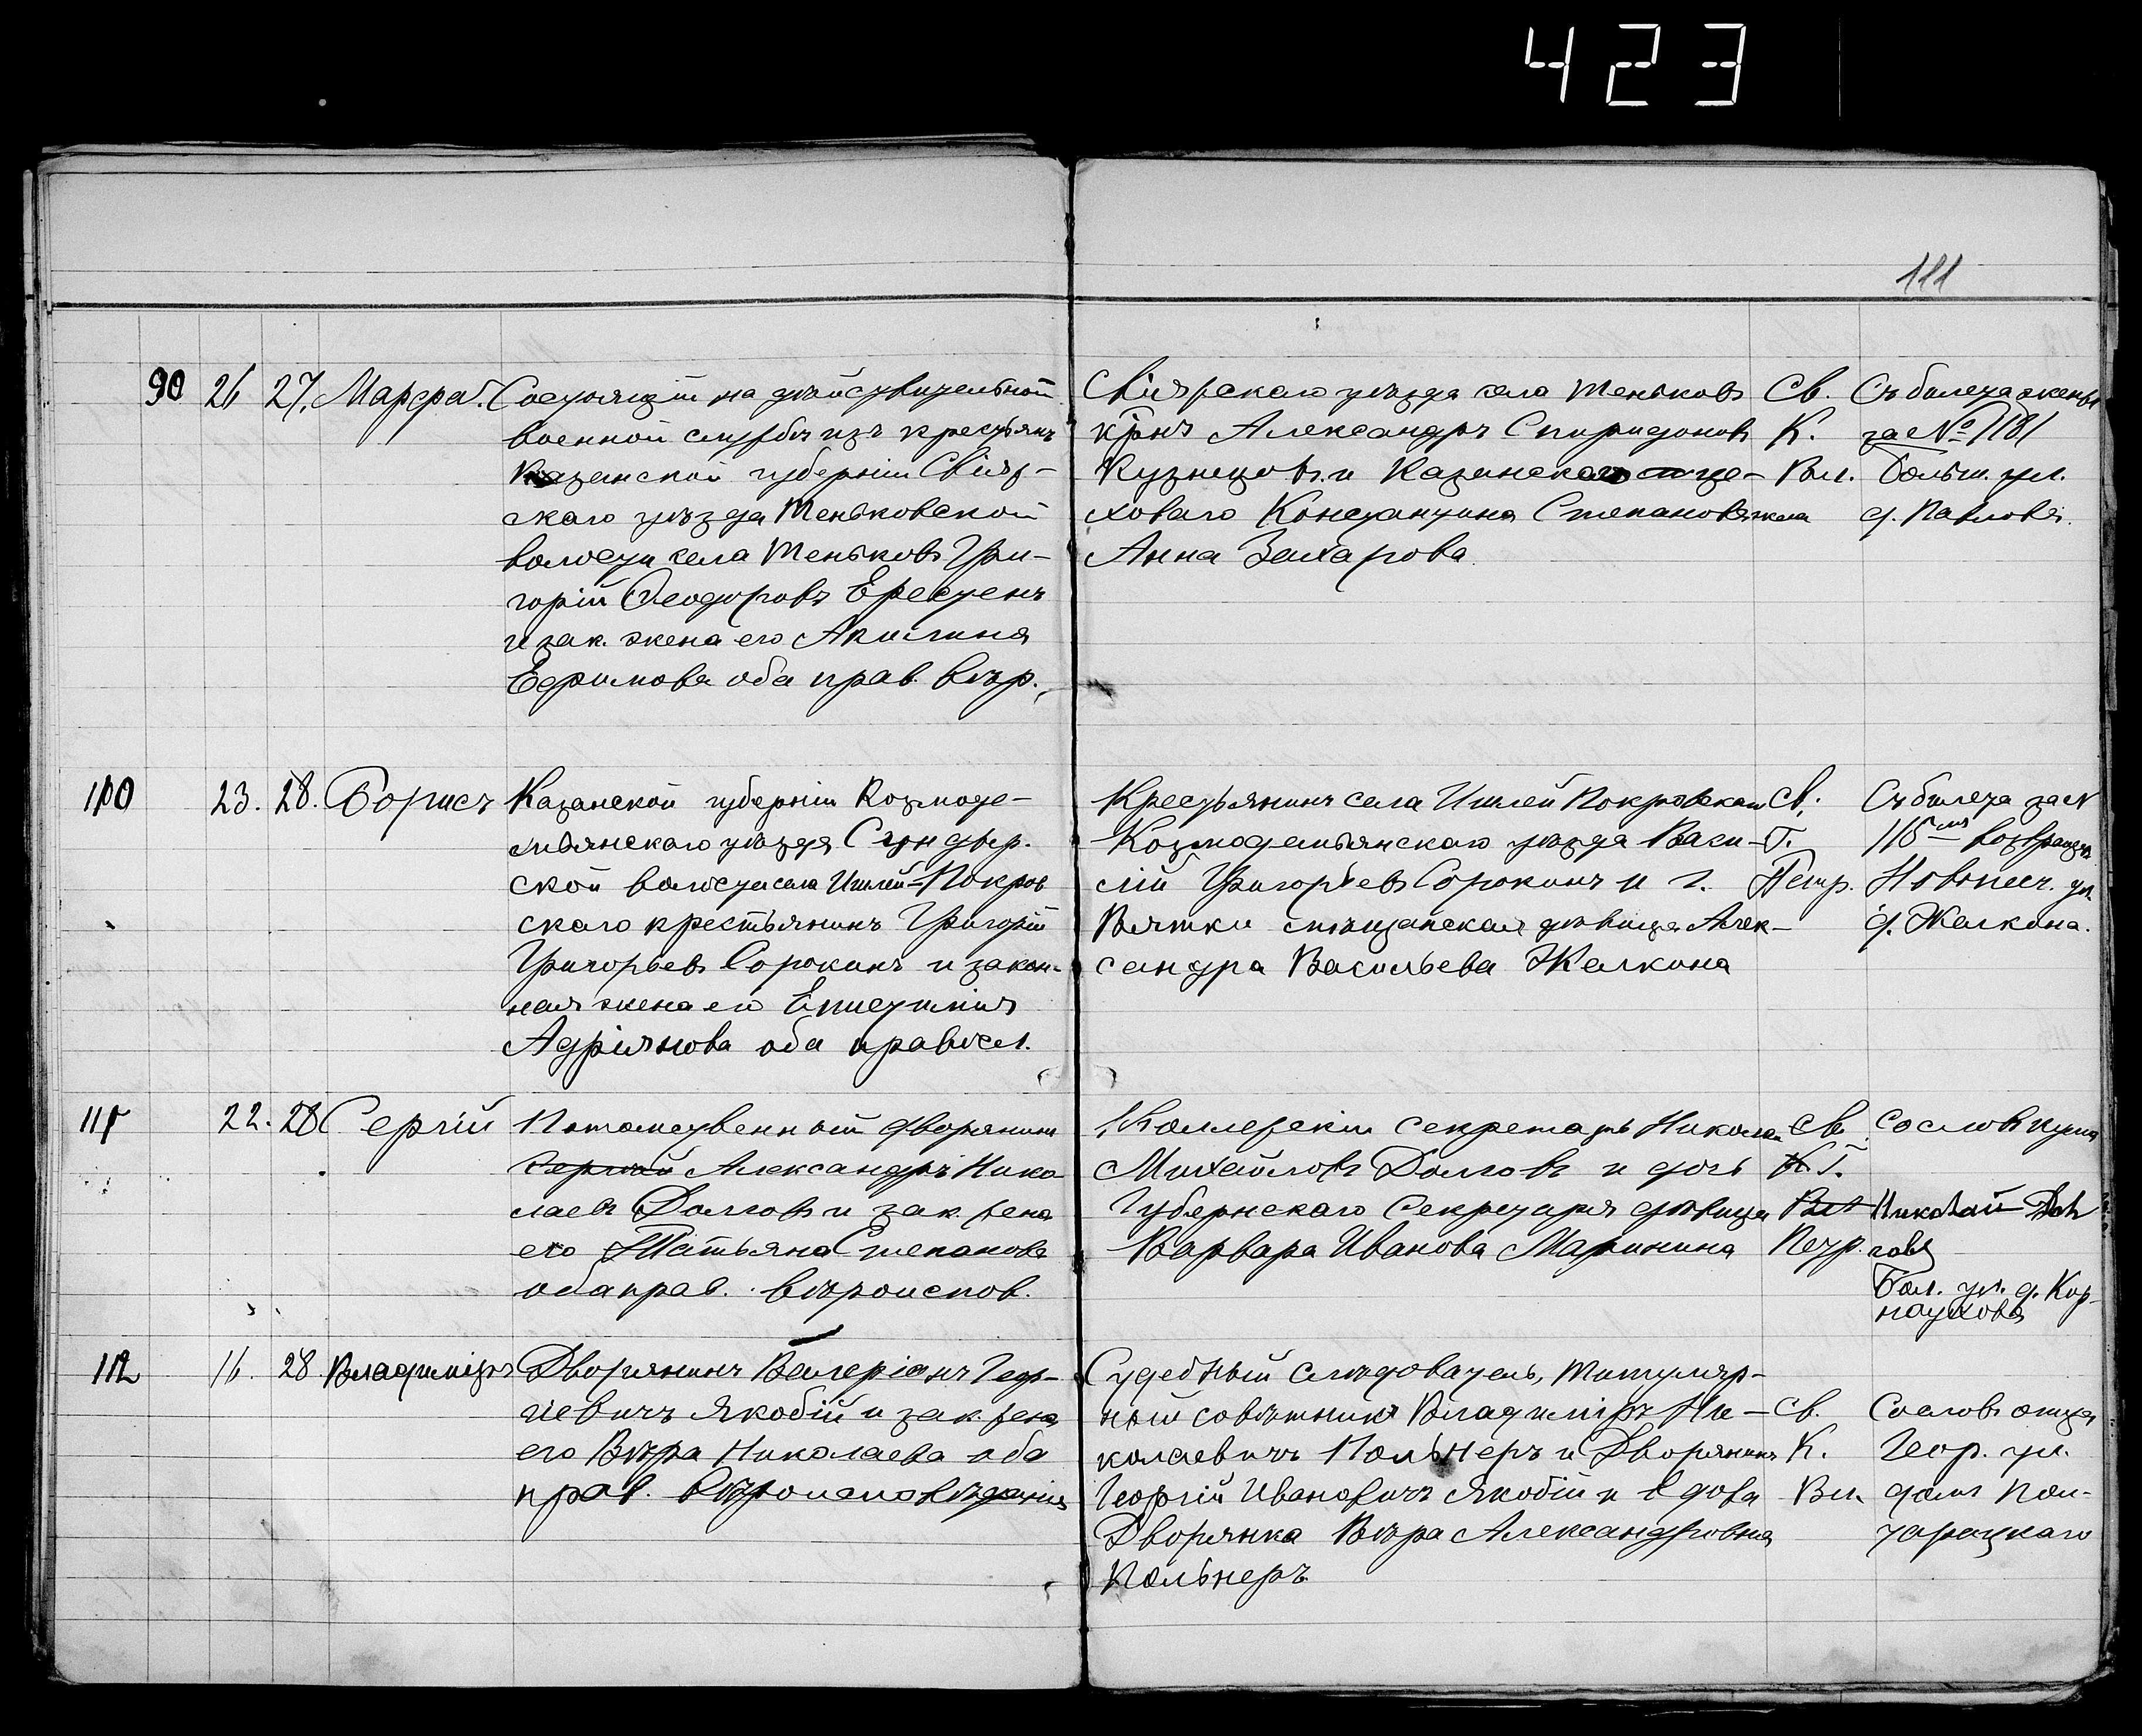 423
111
90 26 27. Марѳа. Состоящій на дѣйствительной
военной службѣ изъ крестьянъ
Казанской губерніи Свіяж-
скаго уѣзда Теньковской
волости села Теньковъ Гри-
горій Ѳеодоровъ
и зак. жена его Акилина
Ефимова оба прав. вѣр.
Свіяжскаго уѣзда села Теньковъ
крнъ Александръ Спиридоновъ
Кузнецовъ и Казанскаго це-
ховаго Константина Степанова жена
Анна Захарова.
Св.
К.
Вл.
Съ билета жены
за № 1181
Больш. ул.
д. Павлова.
110 23. 28. Борисъ Казанской губерніи Козмоде-
мьянскаго уѣзда Сундыр.
ской волости села Ишлей-Покров
скаго крестьянинъ Григорій
Григорьевъ Сорокинъ и закон-
ная жена его Епистимія
Адріянова оба правосл.
Крестьянинъ села Ишлей Покровскаго
Козмодемьянскаго уѣзда Васи-
лій Григорьевъ Сорокинъ и г.
Вятки мѣщанская дѣвица Алек-
сандра Васильева Жалкина
Св.
Г.
Петр.
Съ билета за №
115
Новопеш. ул.
д. Жалкина.
111 22. 28 Сергій Потомственный дворянинъ
Сергій Александръ Нико
лаевъ Долговъ и зак. жена
его Татьяна Степанова
оба прав. вѣроиспов.
Коллежскій секретарь Николай
Михайловъ Долговъ и дочь
Губернскаго Секретаря дѣвица
Варвара Иванова Маринина
Св.
К Г.
Вл
Петр.
Со словъ кума
Николай Дол
гова
Бол. ул. д. Кор-
наухова
112 16. 28 Владиміръ Дворянинъ Валеріанъ Геор-
гіевичъ Якобій и зак. жена
его Вѣра Николаева оба
прав. вѣроисповѣданія
Судебный слѣдователь, Титуляр-
ный совѣтникъ Владиміръ Ни-
колаевичъ Польнеръ и Дворянинъ
Георгій Ивановичъ Якобій и вдова
Дворянка Вѣра Александровна
Польнеръ
Св.
К.
Вл.
Со словъ отца
Геор. ул.
домъ Пол-